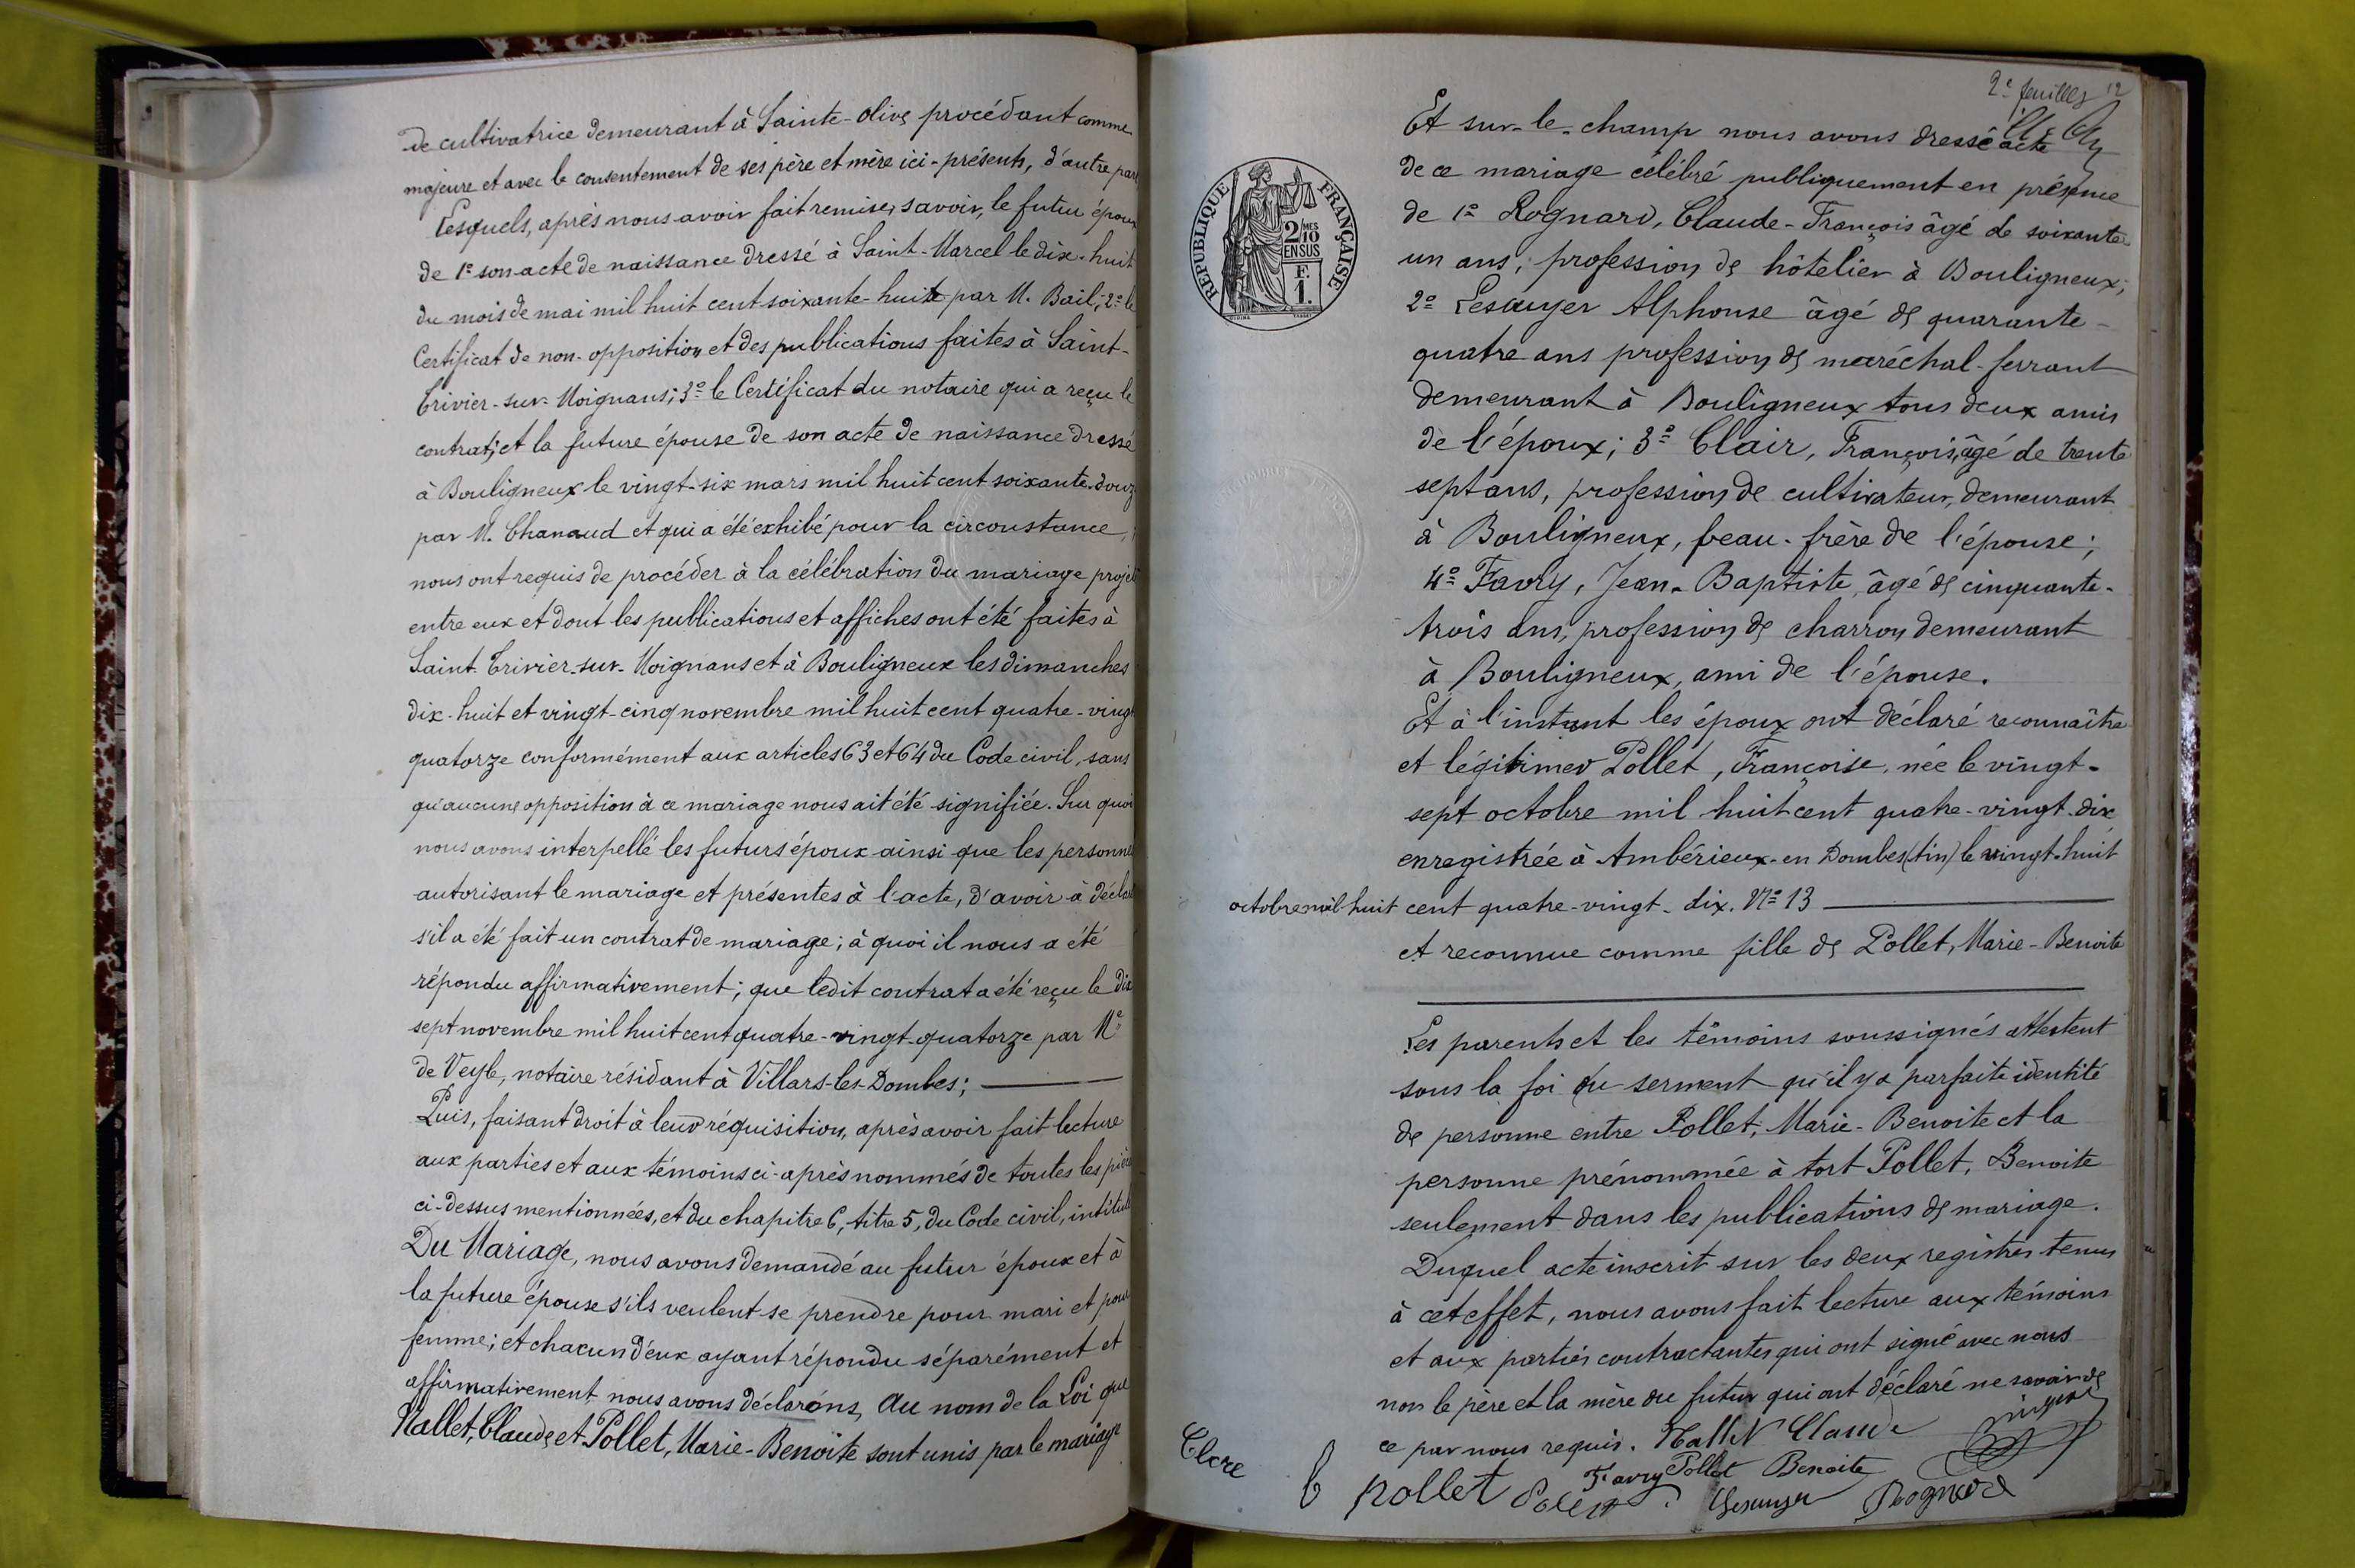 de cultivatrice demeurant à Sainte-Olive procédant comme
majeure et avec le consentement de ses père et mère ici-présents, d'autre part
Lesquels, après nous avoir fait remise, savoir, le futur époux
de 1º son acte de naissance dressé à Saint-Marcel le dix-huit
du mois de mai mil huit cent soixante-huit par M. Bail; 2º le
Certificat de non-opposition et des publications faites à Saint-
Trivier-sur-Moignans; 3º le Certificat du notaire qui a reçu le
contrat; et la future épouse de son acte de naissance dressé
à Bouligneux le vingt-six mars mil huit cent soixante-douze
par M. Chanaud et qui a été exhibé pour la circonstance;
nous ont requis de procéder à la célébration du mariage projeté
entre eux et dont les publications et affiches ont été faites à
Saint-Trivier-sur-Moignans et à Bouligneux les dimanches
dix-huit et vingt-cinq novembre mil huit cent quatre-vingt
quatorze conformément aux articles 63 et 64 du Code civil, sans
qu'aucune opposition à ce mariage nous ait été signifiée. Sur quoi
nous avons interpellé les futurs époux ainsi que les personnes
autorisant le mariage et présentes à l'acte, d'avoir à déclarer
s'il a été fait un contrat de mariage; à quoi il nous a été
répondu affirmativement; que ledit contrat a été reçu le dix
sept novembre mil huit cent quatre-vingt-quatorze par Me
de Veyle, notaire résidant à Villars-les-Dombes;
Puis, faisant droit à leur réquisition, après avoir fait lecture
aux parties et aux témoins ci-après nommés de toutes les pièces
ci-dessus mentionnées, et du chapitre 6, titre 5, du Code civil, intitulé
Du Mariage, nous avons demandé au futur époux et à
la future épouse s'ils veulent se prendre pour mari et pour
femme; et chacun d'eux ayant répondu séparément et
affirmativement nous avons déclarons, Au nom de la Loi que
Nallet, Claude et Pollet, Marie-Benoîte sont unis par le mariage
2e feuillet 12
RÉPUBLIQUE FRANÇAISE
2/10 MES
EN SUS
F.
1.
Et sur-le-champ nous avons dressé acte
de ce mariage célébré publiquement en présence
de 1º Rognard, Claude-François âgé de soixante
un ans, profession de hôtelier à Bouligneux;
2º Lesauyer Alphonse âgé de quarante-
quatre ans profession de maréchal-ferrant
demeurant à Bouligneux tous deux amis
de l'époux; 3º Clair, François, âgé de trente
sept ans, profession de cultivateur, demeurant
à Bouligneux, beau-frère de l'épouse;
4º Favry, Jean-Baptiste, âgé de cinquante-
trois ans, profession de charron demeurant
à Bouligneux, ami de l'épouse.
Et à l'instant les époux ont déclaré reconnaître
et légitimer Pollet, Françoise, née le vingt-
sept octobre mil huit cent quatre-vingt-dix
enregistrée à Ambérieux-en Dombes (Ain) le vingt-huit
octobre mil huit cent quatre-vingt-dix. Nº 13
et reconnue comme fille de Pollet, Marie-Benoite
Les parents et les témoins soussignés attestent
sous la foi du serment qu'il y a parfaite identité
de personne entre Pollet, Marie-Benoite et la
personne prénommée à tort Pollet, Benoite
seulement dans les publications de mariage.
Duquel acte inscrit sur les deux registres tenus
à cet effet, nous avons fait lecture aux témoins
et aux parties contractantes qui ont signé avec nous
non le père et la mère du futur qui ont déclaré ne savoir de
ce par nous requis. Nallet Claude
Favry Pollet Benoite
Clere
Pollet Lesauyer Rognard